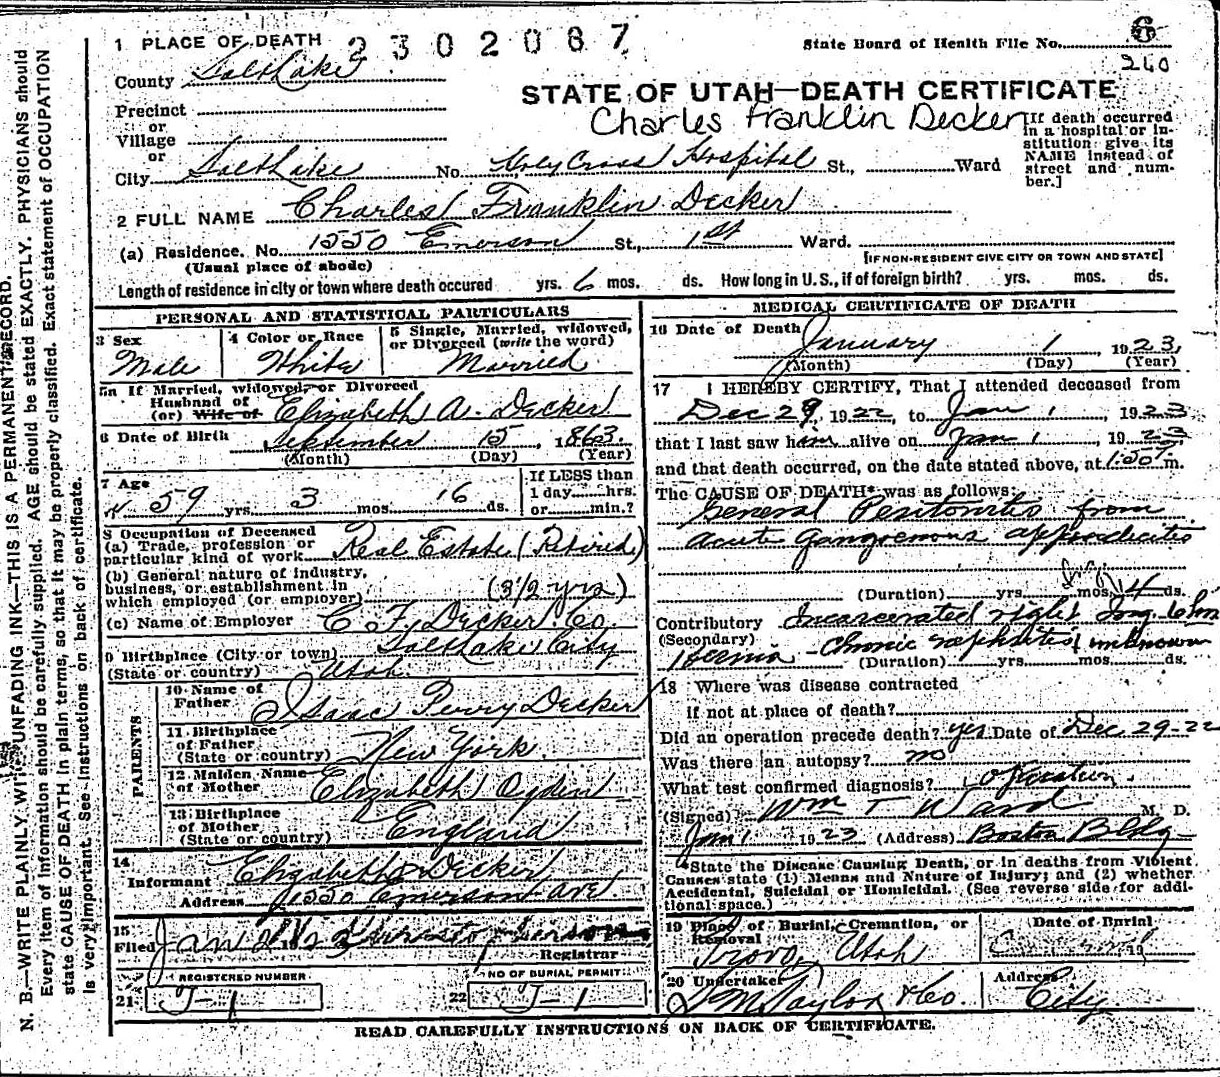 1 PLACE OF DEATH 2302087
State Board of Health File No. 6
260
County Salt Lake
STATE OF UTAH—DEATH CERTIFICATE
Charles Franklin Decker
Precinct
or
Village
or
City Salt Lake No. Holy Cross Hospital St., Ward
[If death occurred
in a hospital or in-
stitution give its
NAME instead of
street and num-
ber.]
2 FULL NAME Charles Franklin Decker
(a) Residence. No. 1550 Emerson St., 1st Ward.
(Usual place of abode) [IF NON-RESIDENT GIVE CITY OR TOWN AND STATE]
Length of residence in city or town where death occured yrs. 6 mos. ds. How long in U.S., if of foreign birth? yrs. mos. ds.
PERSONAL AND STATISTICAL PARTICULARS
3 Sex
Male
4 Color or Race
White
5 Single, Married, widowed,
or Divorced (write the word)
Married
5a If Married, widowed, or Divorced
Husband of
(or) Wife of Elizabeth A. Decker
6 Date of Birth September 15, 1863.
(Month) (Day) (Year)
7 Age
59 yrs. 3 mos. 16 ds.
If LESS than
1 day......hrs.
or......min.?
8 Occupation of Deceased
(a) Trade, profession or
particular kind of work Real Estate (Retired)
(b) General nature of industry,
business, or establishment in
which employed (or employer) (3 1/2 yrs)
(c) Name of Employer C. F. Decker Co.
9 Birthplace (City or town) Salt Lake City
(State or country) Utah.
PARENTS
10 Name of
Father Isaac Perry Decker
11 Birthplace
of Father
(State or country) New York
12 Maiden Name
of Mother Elizabeth Ogden
13 Birthplace
of Mother
(State or country) England
14
Informant Elizabeth Decker
Address 1550 Emerson Ave
15
Filed Jan 2 1923
Registrar
REGISTERED NUMBER
21 J-1
NO OF BURIAL PERMIT
22 J-1
MEDICAL CERTIFICATE OF DEATH
16 Date of Death January 1, 1923,
(Month) (Day) (Year)
17 I HEREBY CERTIFY, That I attended deceased from
Dec 29, 1922, to Jan 1, 1923
that I last saw him alive on Jan 1, 1923
and that death occurred, on the date stated above, at 1:50 m.
The CAUSE OF DEATH* was as follows:
General Peritonitis from
acute gangrenous appendicitis
(Duration) yrs. mos. 4 ds.
Contributory Incarcerated right
(Secondary)
hernia - chronic nephritis (unknown
(Duration) yrs. mos. ds.
18 Where was disease contracted
if not at place of death?
Did an operation precede death? yes Date of Dec. 29-22
Was there an autopsy? no
What test confirmed diagnosis? operation.
(Signed) Wm T Ward M. D.
Jan 1 1923 (Address) Boston Bldg
*State the Disease Causing Death, or in deaths from Violent
Causes state (1) Means and Nature of Injury; and (2) whether
Accidental, Suicidal or Homicidal. (See reverse side for addi-
tional space.)
19 Place of Burial, Cremation, or
Removal
Provo, Utah
Date of Burial
20 Undertaker
S. M. Taylor & Co.
Address
City
READ CAREFULLY INSTRUCTIONS ON BACK OF CERTIFICATE.
N. B.—WRITE PLAINLY WITH UNFADING INK—THIS IS A PERMANENT RECORD.
Every item of information should be carefully supplied. AGE should be stated EXACTLY. PHYSICIANS should
state CAUSE OF DEATH in plain terms, so that it may be properly classified. Exact statement of OCCUPATION
is very important. See instructions on back of certificate.